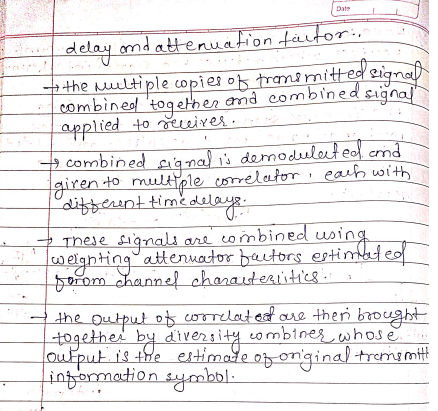 Date
delay and attenuation factor.
→ the multiple copies of transmitted signal
combined together and combined signal
applied to receiver.
→ combined signal is demodulated and
given to multiple correlator, each with
different time delays.
→ These signals are combined using
weighting attenuator factors estimated
from channel characteristics.
→ the output of correlated are then brought
together by diversity combiner whose
output is the estimate of original transmitt
information symbol.